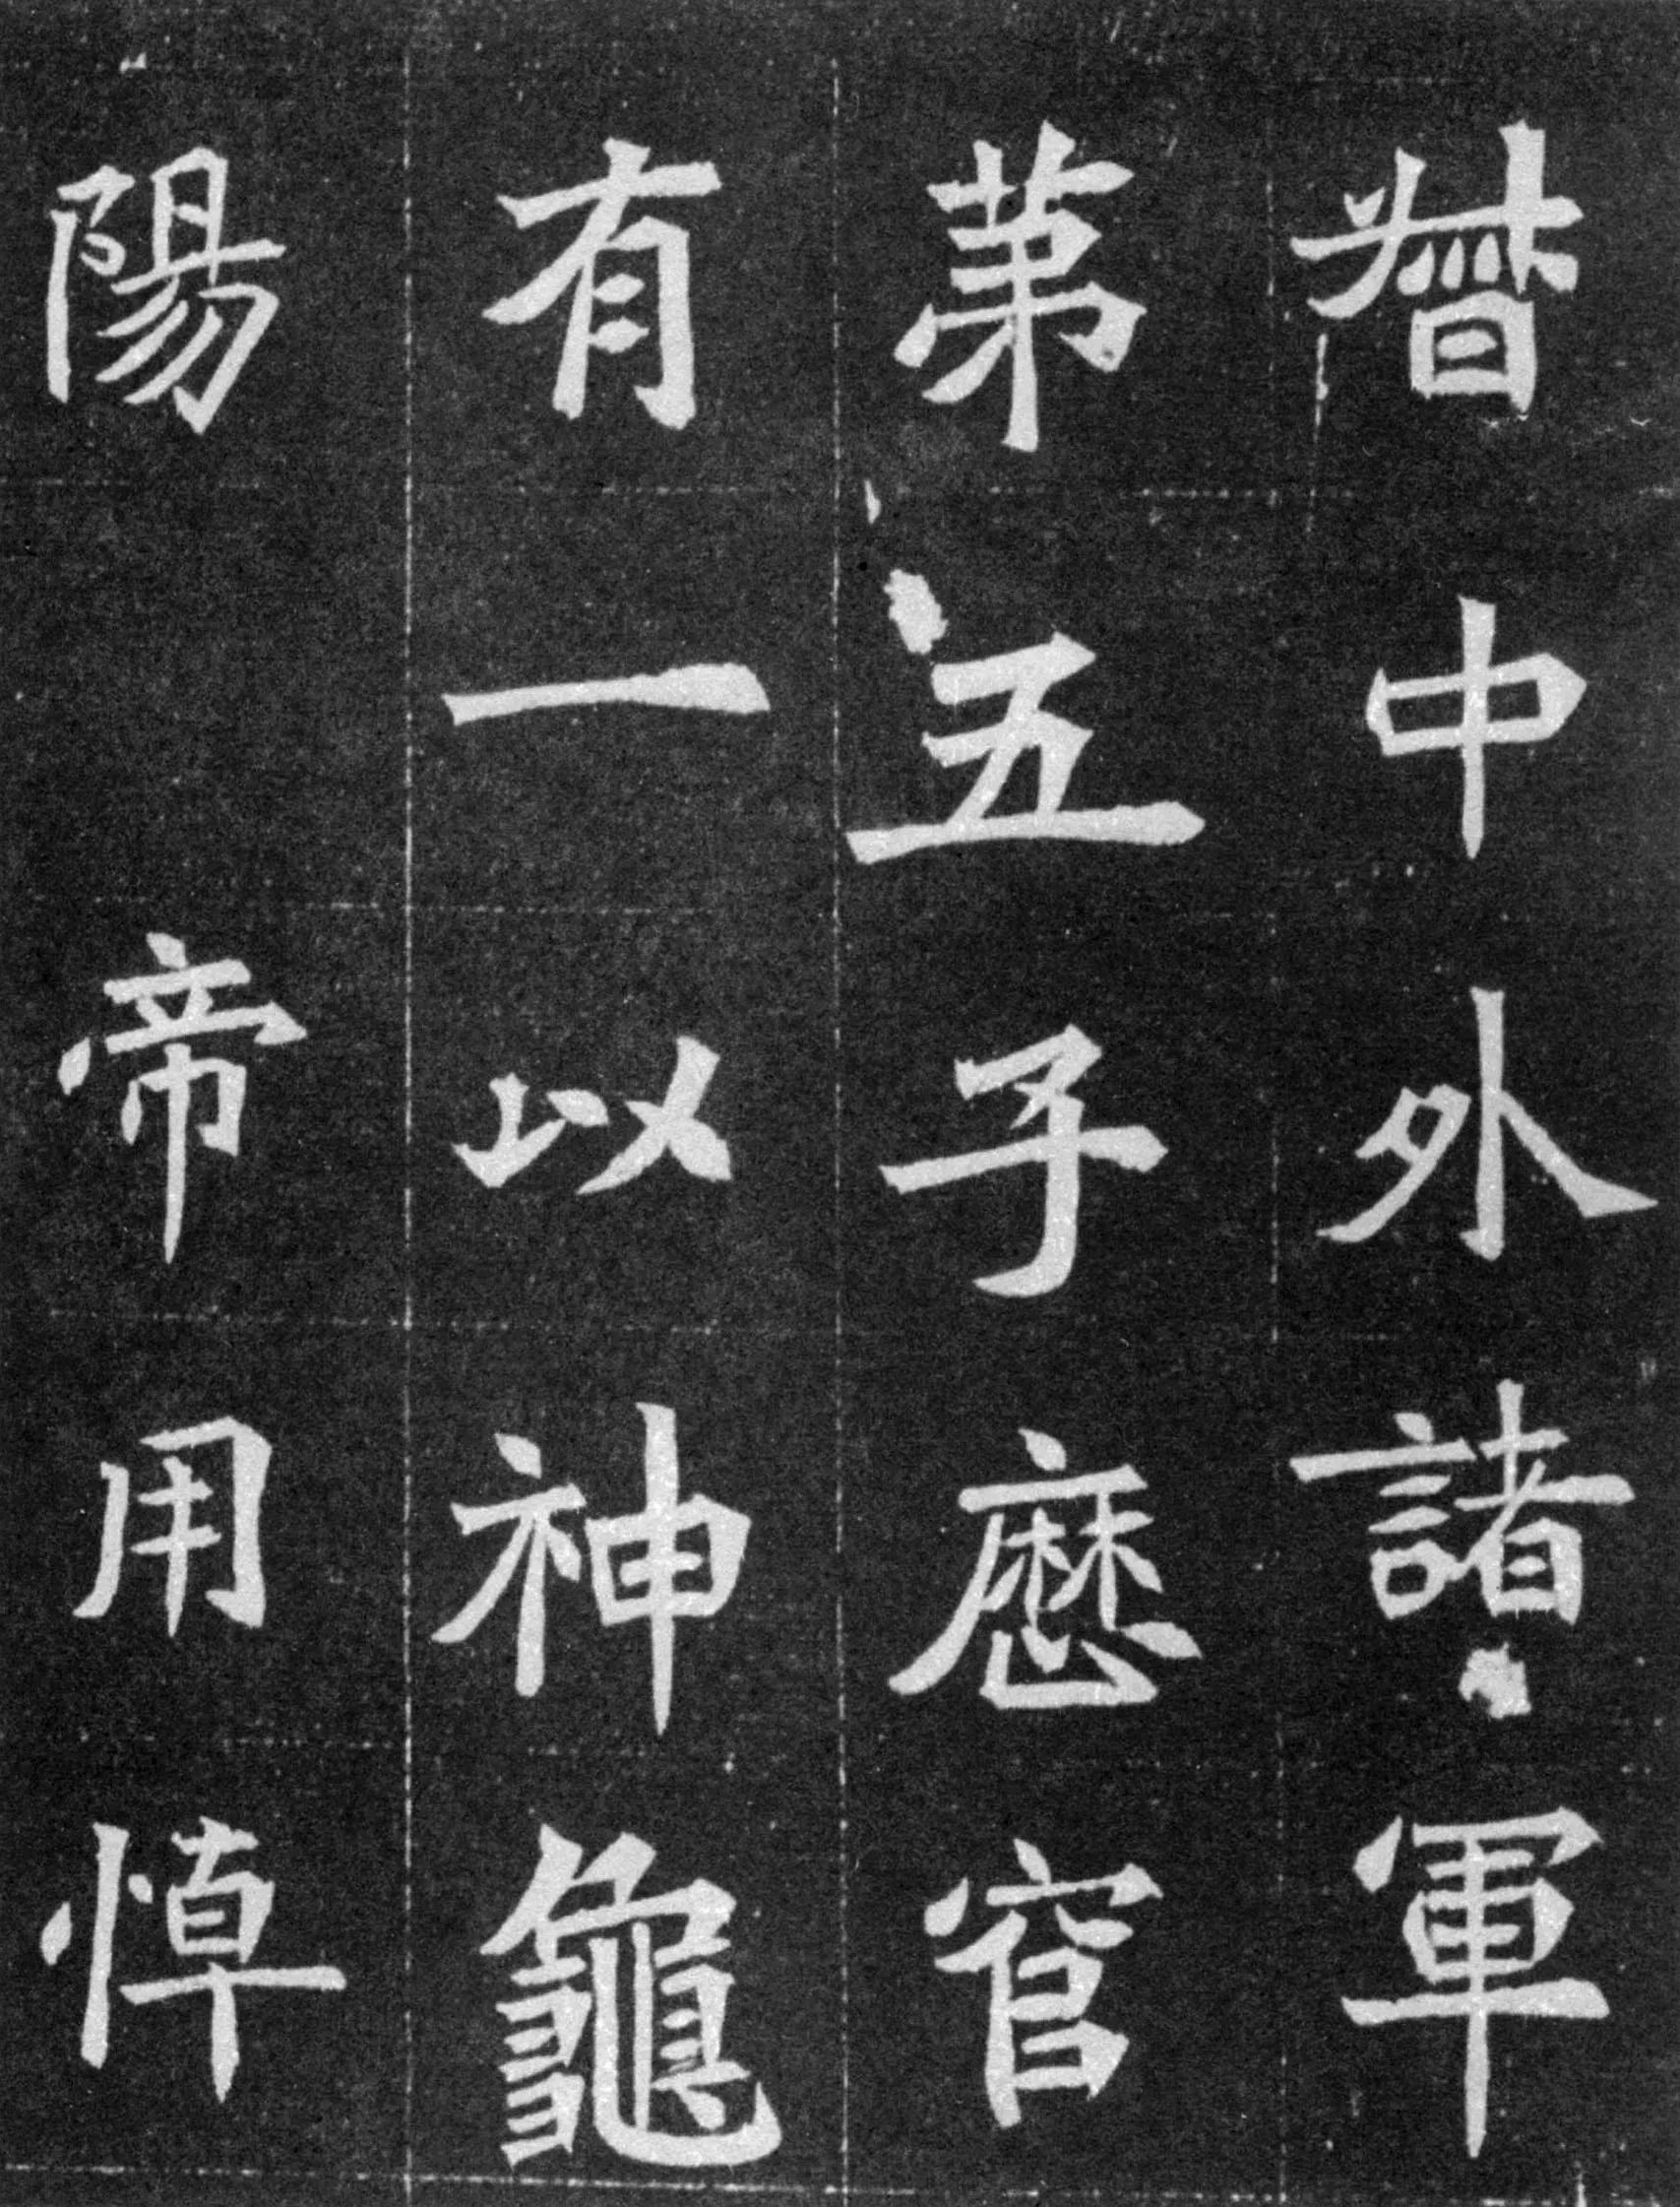 督中外諸軍
第五子歷官
有一以神龜
陽 帝用悼